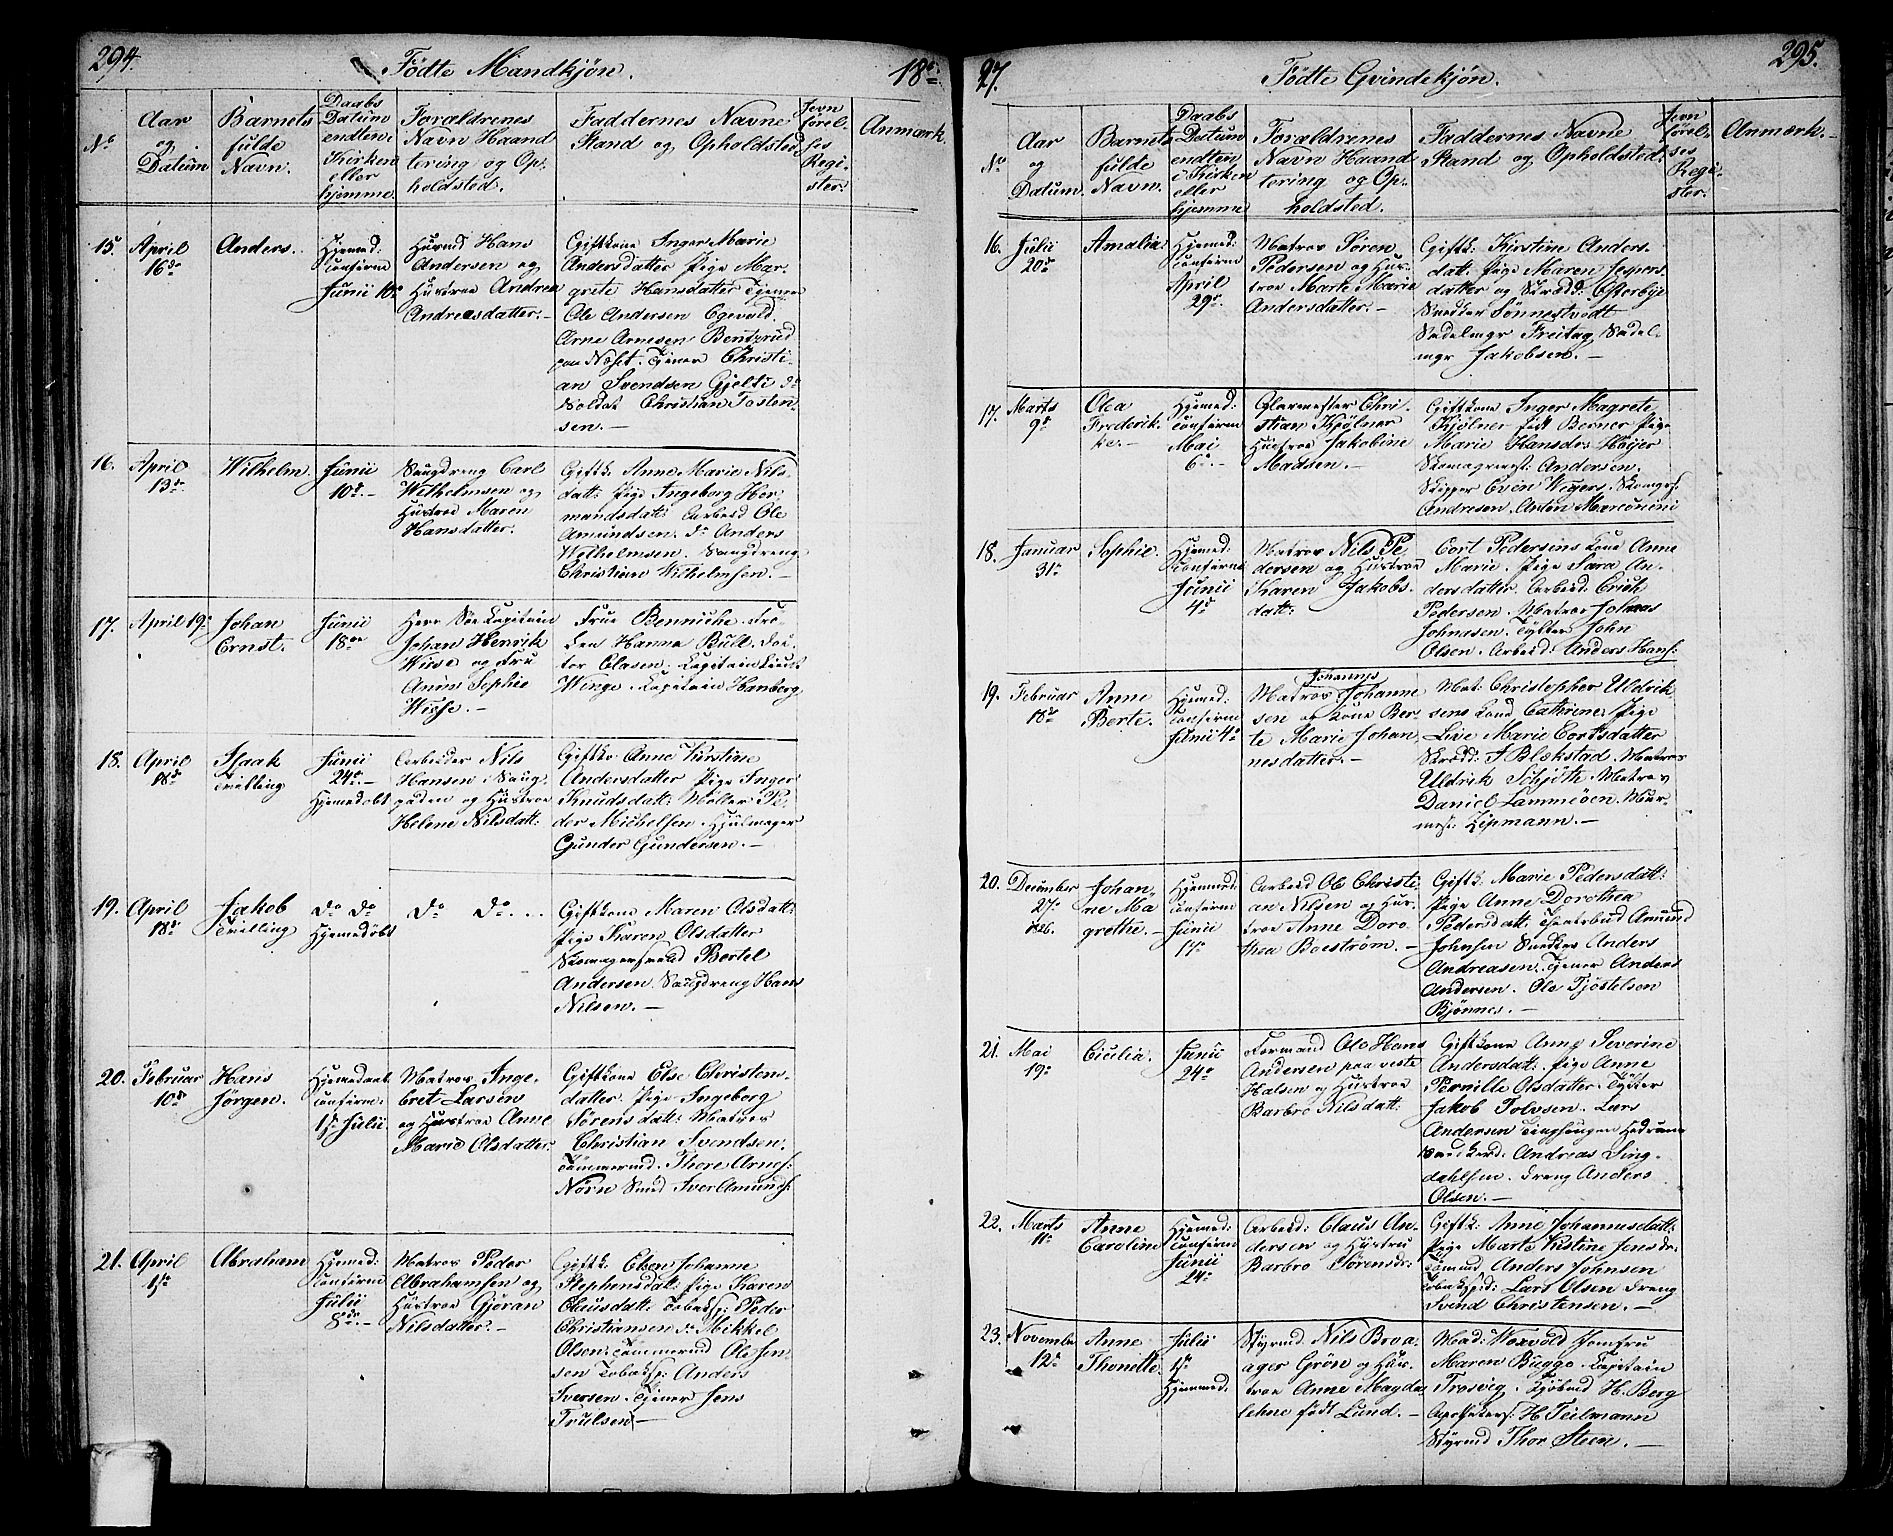 294.
Födte Mandkjön.
18
No
Aar
og
Datum
Barnets
fulde
Navn.
Daabs
Datum
endten i
Kirken
eller
hjemme
Forældrenes
Navn Haand
tering og Op-
holdsted.
Faddernes Navne
Stand og Opholdsted
Jevn
förel-
ses
Regi-
ster.
Anmærk.
15.
April
16de
Anders.
Hjemed:
confirm
Junii 10de
Huusmd Hans
Andersen og
Hustroe Andrea
Andreasdatter.-
Giftkone Inger Marie
Andersdatter Pige Mar-
grete Hansdatter Tjener
Ole Andersen Egevold.
Arne Arnesen Bentzrud
paa Næset. Tjener Christi-
an Svendsen Gjelti do
Soldat Christian Tosten-
sen.-
16.
April
13de
Wilhelm.
Junii
10de.-
Saugdreng Carl
Wilhelmsen og
Hustroe Maren
Hansdatter.
Giftk: Anne Marie Nils
datt: Pige Ingeborg Her-
mandsdatt: Arbeid Ole
Amundsen. do Anders
Wilhelmsen. Saugdreng
Christian Wilhelmsen.-
17.
April 19de
Johan
Ernst.
Junii
18de
Herr Söe Kapitain
Johan Henrik
Wiese og Fru
Anne Sophie
Wisse.-
Frue Benniche. Frö-
ken Hanna Bull. Doc-
tor Olesen. Kapitain Lieut
Winge. Kapitain Hamberg
18.
April
18de
Isaak
Tvilling
Junii
24de.-
Hjemedöbt
Arbeider Nils
Hansen Saug-
paden og Hustroe
Helene Nilsdatt:
Giftko Anne Kirstine
Andersdatter Pige Inger
Knudsdatt: Möller Pe-
der Michelsen. Hjulmager
Gunder Gundersen.-
19.
April
18de
Jakob
Tvilling
do do
Hjemedöbt
do do...
Giftkone Maren Olsdatt:
Pige Karen Olsdatter
Skomagersvend Bertel
Andersen Saugdreng Hans
Nilsen.-
20.
Februar
10de
Hans
Jörgen.
Hjemedöbt
Confirm:
1ste Julii.
Matros Inge-
bret Larsen
og Hustroe Anne
Marie Olsdatter.
Giftkone Else Christens-
datter. Pige Ingeborg
Sörensdatt: Matros
Christian Svendsen.
Tömmermd. Thore Arnes:
Nörn Smed Iver Amunds:
21.
April
1ste
Abraham
Hjemed:
Confirm
Julii
8de.-
Matros Peder
Abrahamsen og
Hustroe Gjöran
Nilsdatter.-
Giftk: Elen Johanne
Stephensdatt: Pige Karen
Clausdatt: Tobaksp: Peder
Christiansen do Mikkel
Olsen: Tömmermd Ole Jen-
sen Tobaksp: Anders
Iversen. Tjener Jens
Trulsen.-
27.
Födte Qvindekjön.
295.
No
Aar
og
Datum.
Barnets
fulde
Navn.
Daabs
Datum
endten
i Kirken
eller
hjemme
Forældrenes
Navn Haand
tering og Op-
holdsted.
Faddernes Navne
Stand og Opholdsted.
Jevn
förel-
ses
Regi-
ster.
Anmærk.-
16.
Julii
20de
Amalia.
Hjemed:
Confirm
April
29de
Matros Sören
Pedersen og Hus-
troe Marte Marie
Andersdatter.-
Giftk: Kirstine Anders
datt: Pige Maren Jespers
datter og Skræd: Österbye
Snedker Sönnestvedt
Sadelmgr Freitag Sadel-
mgr Jakobsen.-
17.
Marts
9de
Olea
Frederik-
ke.-
Hjemed:
confirm
Mai
6te.-
Glarmester Chri-
stian Kjölner
Hustroe Jakobine
Madsen.-
Giftkone Inger Magrete
Kjölner födt Berner Pige
Marie Hansdr Höyer
Skomagermest: Andersen.
Skipper Even Wegers. Skomgrs:
Andresen. Anton Marconini
18.
Januar
31te
Sophie.
Hjemed:
confirm
Junii
4de
Matros Nils Pe-
dersen og Hustroe
Karen Jakobs-
datt:
Cort Pedersens Kone Anne
Marie. Pige Sara An-
dersdatter. Arbeid: Erich
Pedersen. Matros Johnas
Johnasen. Tylter John
Olsen. Arbeid: Anders Hans:
19.
Februar
18de
Anne
Berte.
Hjemed:
Confirm
Junii 4de
Johannes
Matros Johanne
sen og Kone Ber-
te Marie Johan
nesdatter.-
Mat: Christopher Uldrik-
sens Kone Cathrine. Pige
Live Marie Cortsdatter
Skræd: J Blekstad. Matros
Uldrik Schjöth. Matros
Daniel Lammöen. Mur-
mest: Lipmann.-
20.
December
27de
1826.
Johan-
ne Ma
grethe.-
Hjemed:
Confirm
Junii
17de
Arbeid Ole Christi-
an Nilsen og Hus-
troe Anne Doro
thea Boeström.-
Giftk: Marie Pedersdatt:
Pige Anne Dorothea
Pedersdatt. Amund
Johnsen Snedker Anders
Andreasen. Tjener Anders
Andersen. Ole Tjöstelsen
Bjönnes.-
21.
Mai
19de
Cicilia.
Junii
24de
Formand Ole Hans
Andersen paa Veste
Halsen og Hustroe
Barbro Nilsdatt:
Giftkone Anne Severine
Andersdatt: Pige Anne
Pernille Olsdatter. Tylter
Jakob Tolvsen. Lars
Andersen Hedrum
Andreas Ling-
dahlsen. Dreng Anders
Olsen.-
22.
Marts
11te
Anne
Caroline
Hjemed:
Confirm
Junii
24de
Arbeid: Claus An-
dersen og Hustru
Barbro Sörensdr:
Giftk: Anne Johannesdatt:
Pige Marte Kistine Jensdr:
Tömmd Anders Johnsen
Tobakspd: Lars Olsen dreng
Svend Christensen.-
23.
November
12te
Anne
Thonette.
Julii
1ste
Hjemmed.
Styrmd Nils Broa
ager Grön og Hus-
troe Anne Magda-
lehne födt Lund.-
Mad: Woxvold Jomfru
Maren Bugge. Capitain
Trosvig. Kjöbmd H. Berg
Apotheker: H. Teilmann
Styrmd Thor Steen.-